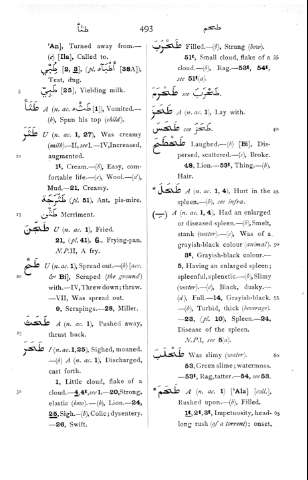 طثأ 493 طحم
['An], Turned away from.—
(c) [Ila], Called to.
[2, 3], (pl. [38A]),
Teat, dug.
[25], Yielding milk.
A (n. ac. [1]), Vomited.—
(b), Spun his top (child).
U (n. ac. 1, 27), Was creamy
(milk).—II, see 1.—IV, Increased,
augmented.
1t, Cream.—(b), Easy, com-
fortable life.—(c), Wool.—(d),
Mud.—21, Creamy.
(pl. 51), Ant, pis-mire.
Merriment.
U (n. ac. 1), Fried.
21, (pl. 41). G. Frying-pan.
N.P.II, A fry.
U (n. ac. 1), Spread out.—(b) [acc.
& Bi], Scraped (the ground)
with.—IV, Threw down; threw.
—VII, Was spread out.
9, Scrapings.—28, Millet.
A (n. ac. 1), Pushed away,
thrust back.
I (n. ac. 1, 25), Sighed, moaned.
—(b) A (n. ac. 1), Discharged,
cast forth.
1, Little cloud, flake of a
cloud.—4, 4t, see 1.—20, Strong,
elastic (bow).—(b), Lion.—24,
25, Sigh.—(b), Colic; dysentery.
—26, Swift.
Filled.—(b), Strong (bow).
51t, Small cloud, flake of a
cloud.—(b), Rag.—53t, 54t,
see 51t(a).
see
A (n. ac. 1), Lay with.
see
Laughed.—(b) [Bi], Dis-
persed, scattered.—(c), Broke.
48, Lion.—53t, Thing.—(b),
Hair.
A (n. ac. 1, 4), Hurt in the
spleen.—(b), see infra.
A (n. ac. 1, 4), Had an enlarged
or diseased spleen.—(b), Smelt,
stank (water).—(c), Was of a
grayish-black colour (animal).
3t, Grayish-black colour.—
5, Having an enlarged spleen;
spleenful, splenetic.—(b), Slimy
(water).—(c), Black, dusky.—
(d), Full.—14, Grayish-black.
—(b), Turbid, thick (beverage).
—23, (pl. 10), Spleen.—24,
Disease of the spleen.
N.P.I, see 5(a).
Was slimy (water).
53, Green slime; watermoss.
—53t, Rag, tatter.—54, see 53.
A (n. ac. 1) ['Ala] [coll.],
Rushed upon.—(b), Filled.
1t, 2t, 3t, Impetuosity, head-
long rush (of a torrent); onset.